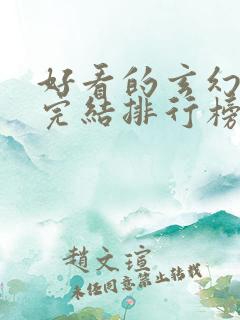 好看的玄幻
完結排行榜
趙文瑄
未经同意禁止转载